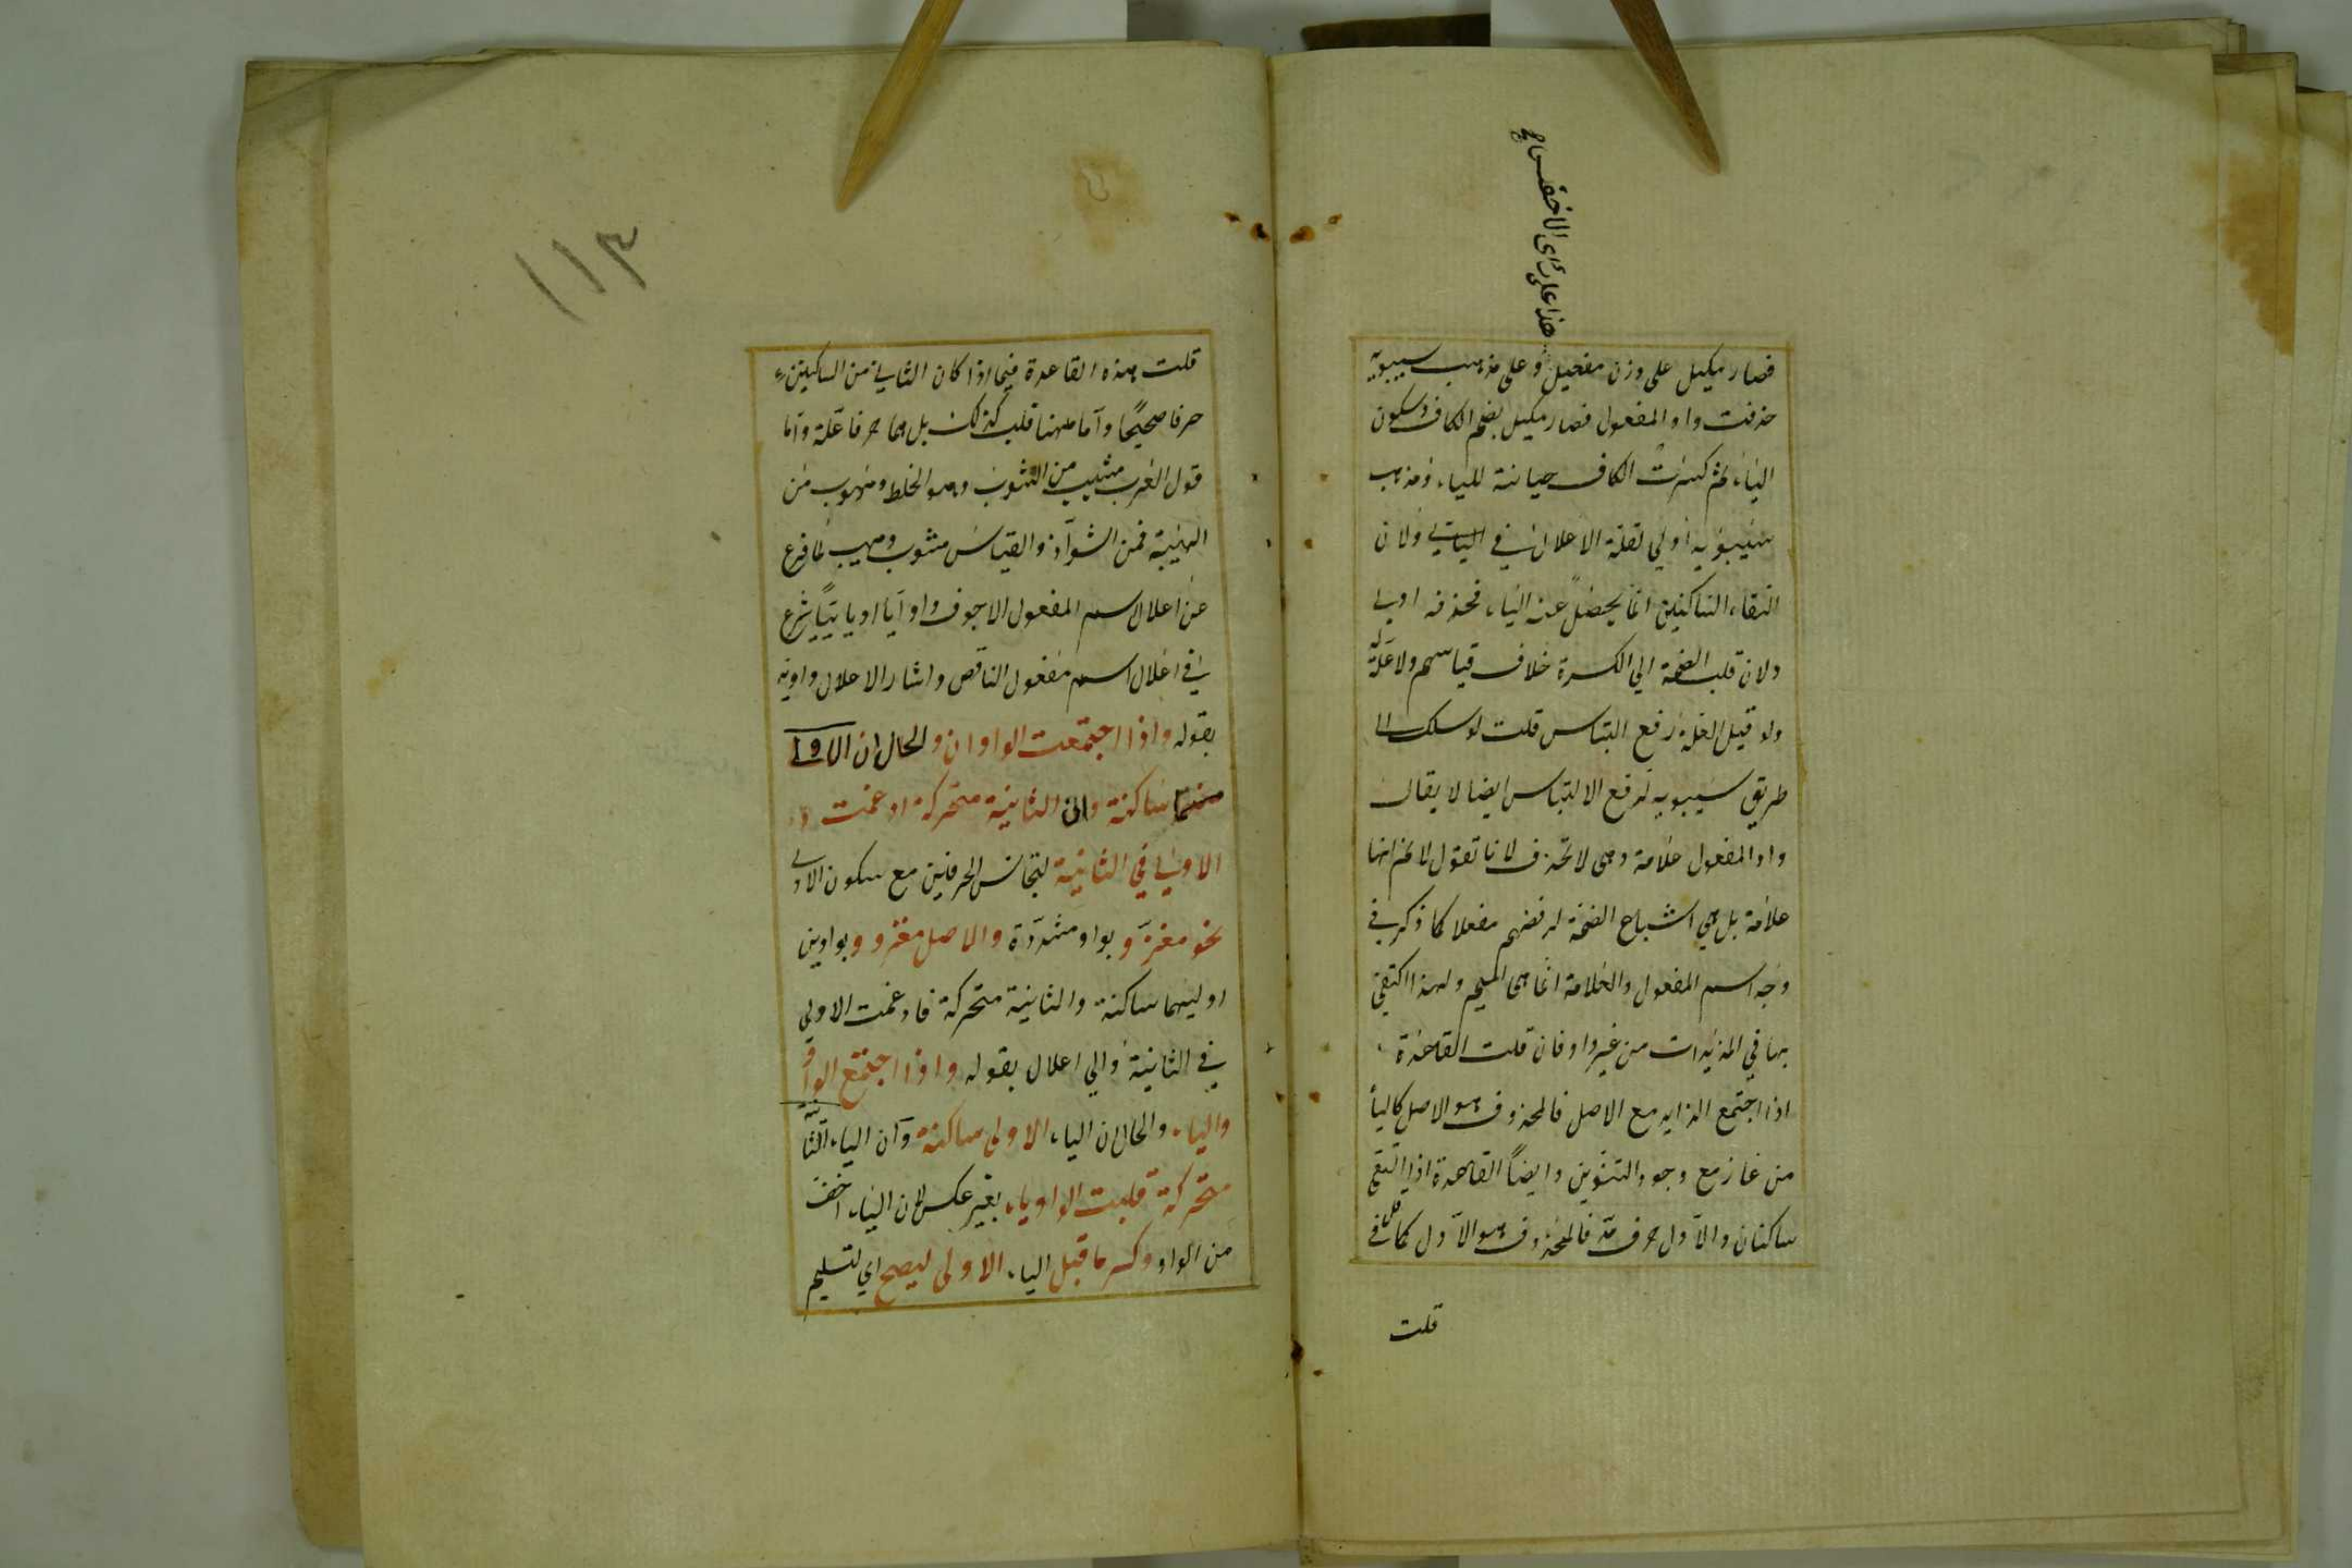 هذا على رأى الاخفش
فصار مكيل على وزن مفعيل وعلى مذهب سيبويه
حذفت واو المفعول فصار مكيل بضم الكاف وسكون
الياء ثم كسرت الكاف صيانة للياء ومذهب
سيبويه اولي لقلة الاعلال في اليائي ولان
التقاء الساكنين انما يحصل عنه الياء فحذفه اولي
ولان قلب الضمة الي الكسرة خلاف قياسهم ولا علة له
ولو قيل العلة رفع التباس قلت لو سلك الا
طريق سيبويه لدفع الالتباس ايضا لا يقال
واو المفعول علامة وهي لا تحذف لانا تقول لا نم انها
علامة بل هي اشباع الضمة لرفضهم مفعلا كما ذكر في
وجه اسم المفعول والعلامة انما هي الميم ولهذا اكتفي
بها في المزيدات من غير واو فان قلت القاعدة
اذا اجتمع الزايد مع الاصل فالمحذوف هو الاصل كالياء
من غاز مع وجود التنوين وايضاً القاعدة اذا التقي
ساكنان والاول حرف مد فالمحذوف هو الاول كما قلن في
قلت
١١٣
قلت هذه القاعدة فيما اذا كان الثاني من الساكنين
حرفا صحيحًا وأما ههنا فليس كذلك بل هما حرفا علة واما
قول العرب مشيب من الشوب وهو الخلط ومهوب من
الهيبة فمن الشواذ والقياس مشوب ومهيب لما فرغ
عن اعلال اسم المفعول الاجوف واوياً او يائياً شرع
في اعلال اسم مفعول الناقص واشار الاعلال واويه
بقوله واذا اجتمعت الواوان والحال ان الاولي
منهما ساكنة وان الثانية متحركة ادغمت
الاولي في الثانية لتجانس الحرفين مع سكون الاولي
نحو مغزوّ بواو مشددة والاصل مغزوو بواوين
اوليهما ساكنة والثانية متحركة فادغمت الاولي
في الثانية والي اعلال بقوله واذا اجتمع الواو
والياء والحال ان الياء الاولى ساكنة وان الياء الثانية
متحركة قلبت الواو ياء بغير عكس لان الياء اخف
من الواو وكسر ما قبل الياء الاولى ليصح اي لتسليم